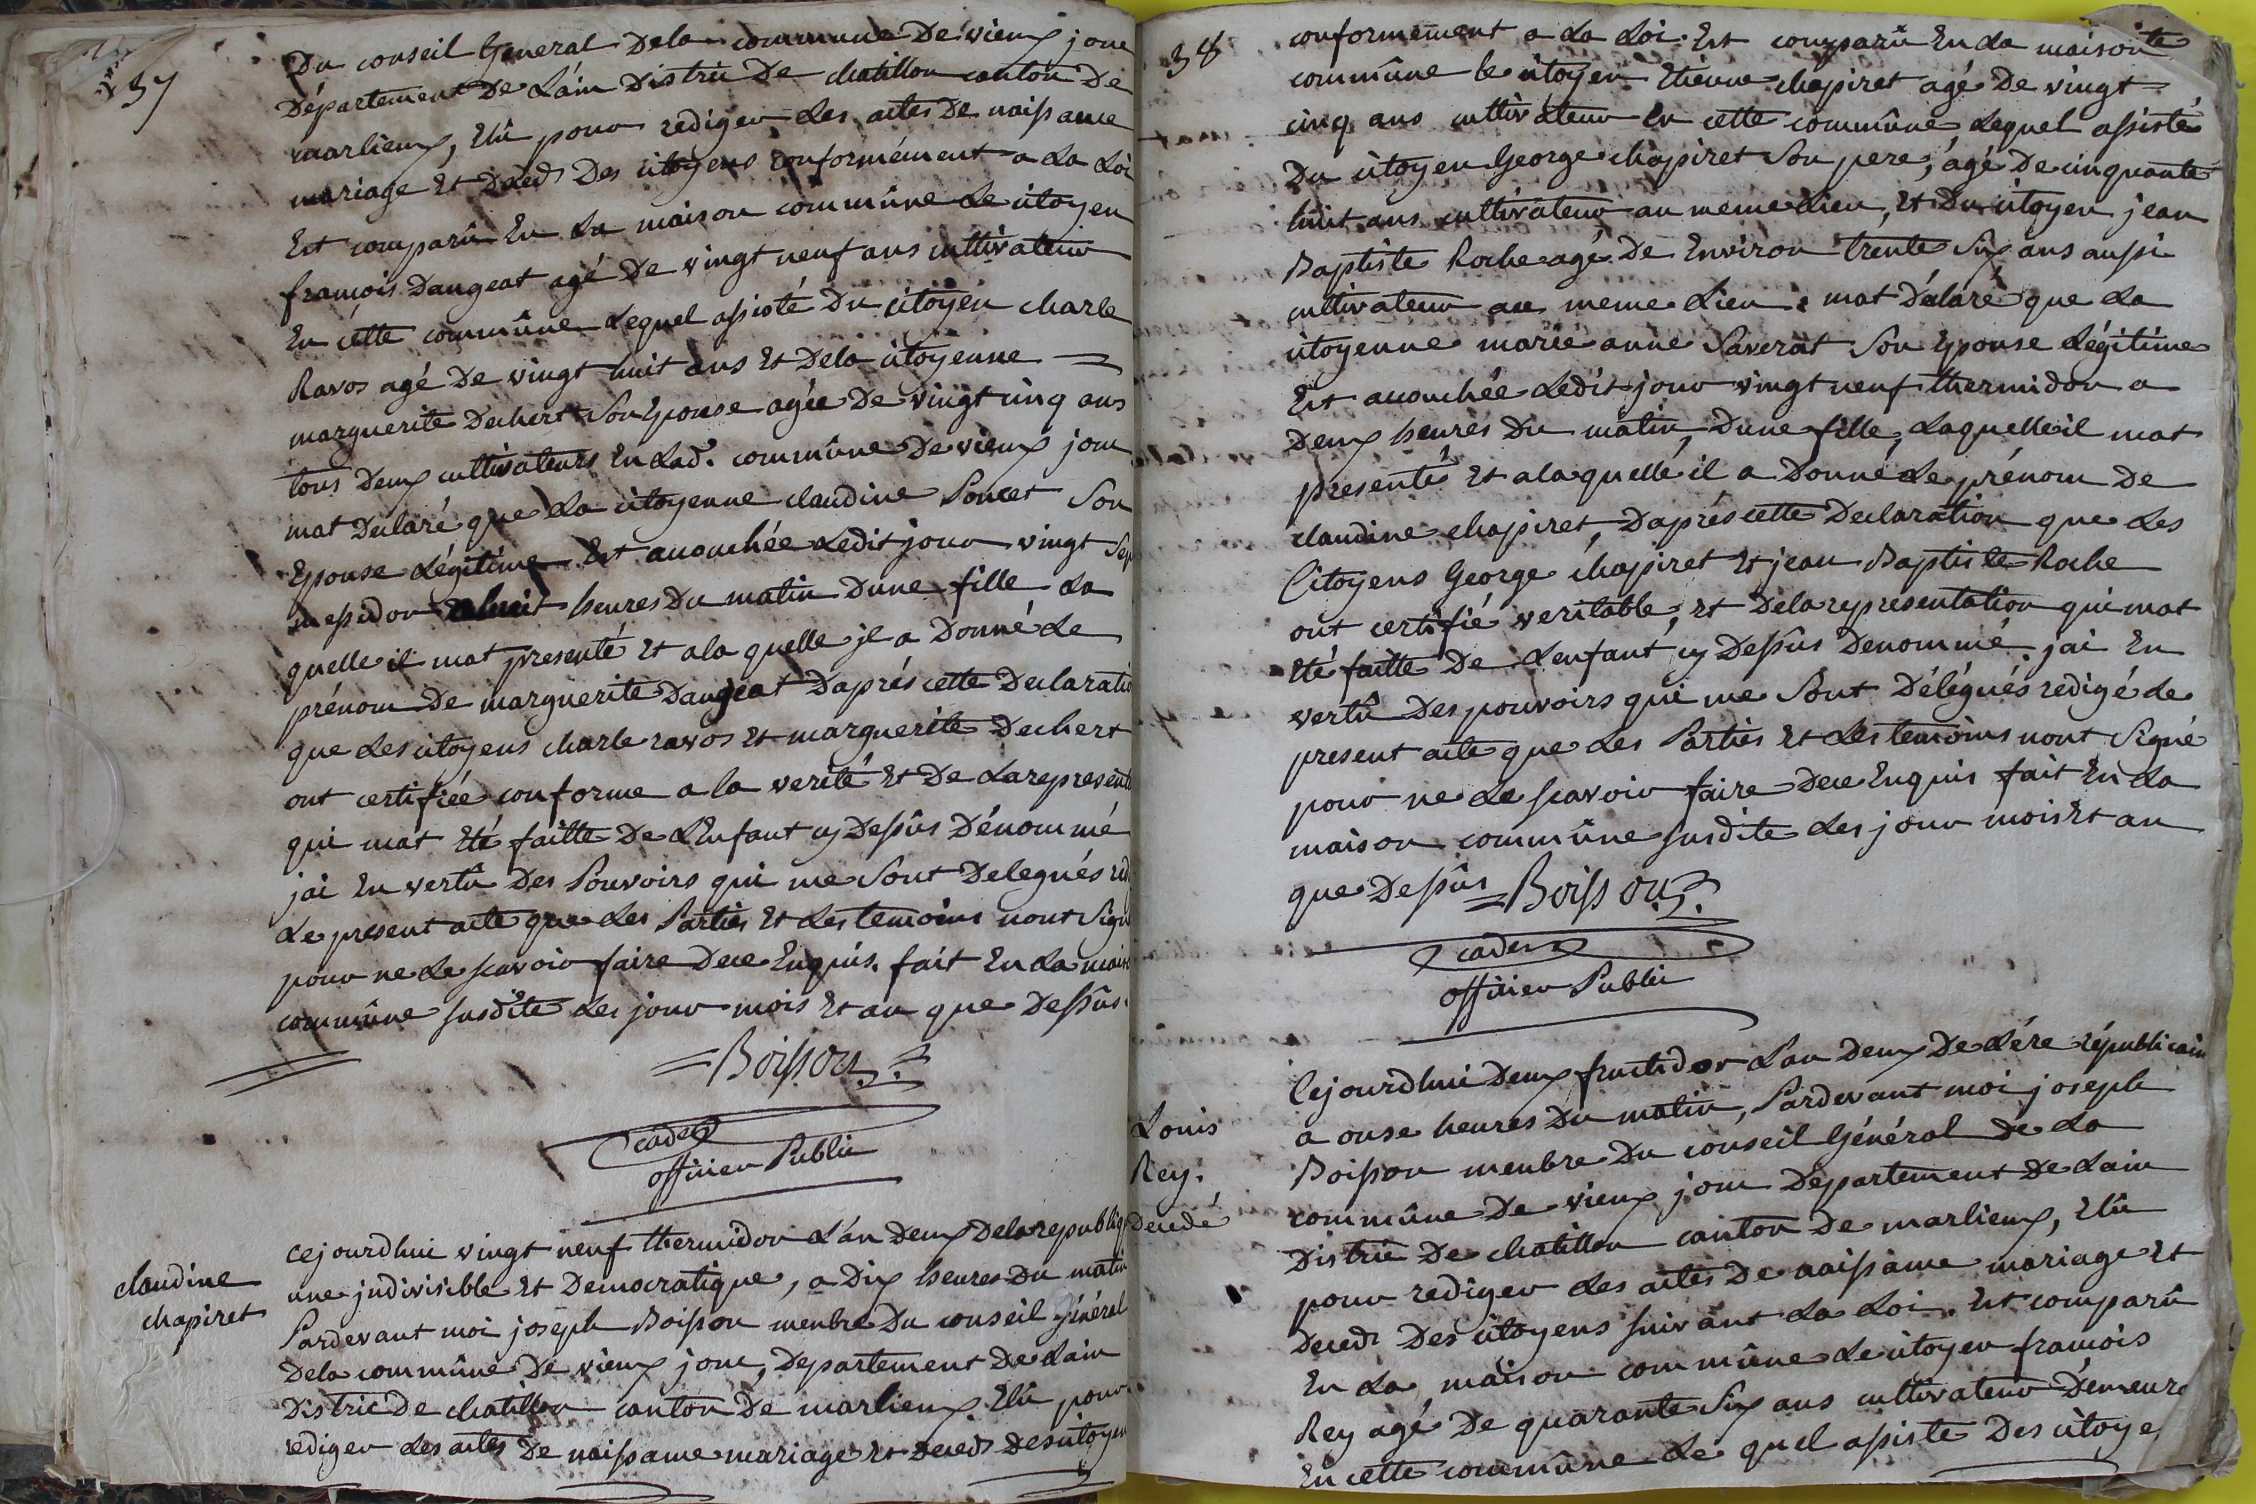 37
Du conseil General Dela commune De vieux jonc
Département De L'ain Distric De chatillon canton De
marlieux, Elû pour rediger les actes De naissance
mariage Et Deced Des citoyens conformément a La Loi
Est comparû En La maison commûne Le citoyen
francois Dangeat agé De vingt neuf ans cultivateur
En cette commûne Lequel assisté Du citoyen charle
Ravos agé De vingt huit ans Et Dela citoyenne
marguerite Dechert Son Epouse agée De vingt cinq ans
tous Deux cultivateurs En Lad. commûne De vieux jonc
mat Declaré que La citoyenne claudine Poncet Son
Epouse Légitime Est accouchée Ledit jour vingt Sep
messidor a huit heures Du matin Dune fille La
quelle il mat presenté Et a la quelle jl a Donné Le
prénom De marguerite Dangeat D'aprés cette Declaratio
que Les citoyens charle ravos Et marguerite Dechert
ont certifiée conforme a la verité Et De La represent
qui mat Eté faitte De L'Enfant cy Dessûs Dénommé
jai En vertû Des Pouvoirs qui me Sont Delegués red
Le present acte que Les Parties Et Les temoins nont Signé
pour ne Le scavoir faire Dece Enquis. fait En La maiso
commûne susdite Les jour mois Et an que Dessûs.
= Boisson
cader
officier Public
claudine
chapiret
cejourdhui vingt neuf thermidor L'an Deux Dela republiq
une jndivisible Et Democratique, a Dix heures Du matin
Pardevant moi joseph Boisson menbre Du conseil Général
Dela commûne De vieux jonc, Departement De Lain
Distric De chatillon canton De marlieux Elû pour
rediger Les actes De naissance mariage Et deced Des citoyen
38
conformément a La Loi. Est comparû En La maison
commûne le citoyen Etienne chapiret agé De vingt
cinq ans cultivateur En cette commûne Lequel assisté
Du citoyen George chapiret Son pere, agé De cinquante
huit ans cultivateur au meme Lieu, Et Du citoyen jean
Baptiste Roche agé De Environ trente Six ans aussi
cultivateur au meme Lieu. mat Déclaré que La
citoyenne marie anne Saverat Son Epouse Légitime
Est accouchée Ledit jour vingt neuf thermidor a
Deux heures Du matin, Dune fille, Laquelle il mat
presenté Et a la quelle il a Donné Le prénom De
claudine chapiret, D'aprés cette Declaration que Les
Citoyens George chapiret Et jean Baptiste Roche
ont certifié veritable, et Dela representation qui mat
Eté faitte De Lenfant cy Dessûs Denommé. jai En
vertû Des pouvoirs qui me Sont Délégués redigé Le
present acte que Les Parties Et Les temoins nont Signé
pour ne Le scavoir faire Dece Enquis fait En La
maison commûne susdite Les jour mois Et an
que Dessûs = Boisson
cader
officier Public
Louis
Rey.
Decedé
Cejourdhui Deux fructidor L'an Deux De L'ére républicain
a onse heures Du matin, Pardevant moi joseph
Boisson menbre Du conseil Général De La
commûne De vieux jonc Département De Lain
Distric De chatillon canton De marlieux, Elû
pour rediger Les actes De naissance mariage Et
Deced Des citoyens suivant La Loi. Est comparû
En La maison commûne Le citoyen francois
Rey agé De quarante Six ans cultivateur Demeure
En cette commûne Le quel assiste Des citoye